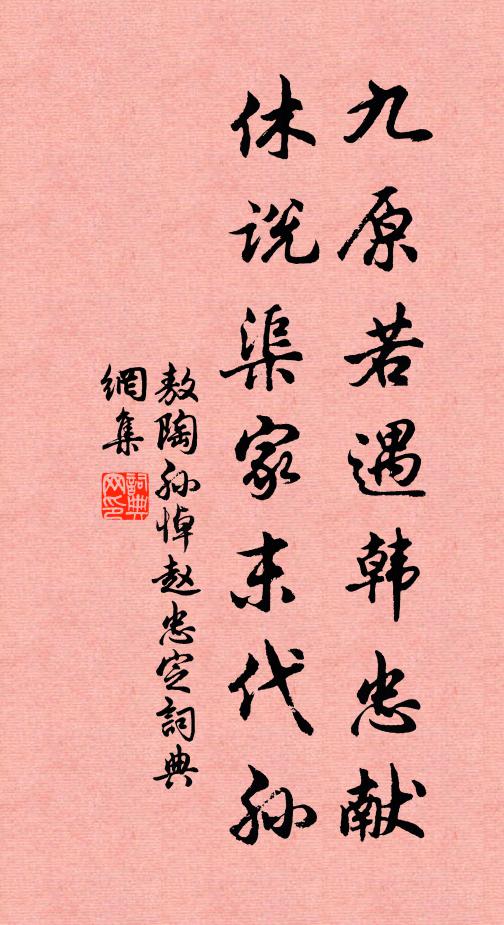 九原若遇韩忠献
休说渠家末代孙
敖陶孙悼赵忠定詞典
網集
詞典网印